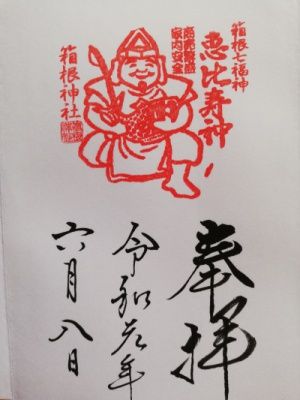 箱根七福神
恵比寿神
商売繁盛
家内安全
箱根神社
奉拝
令和元年
六月八日